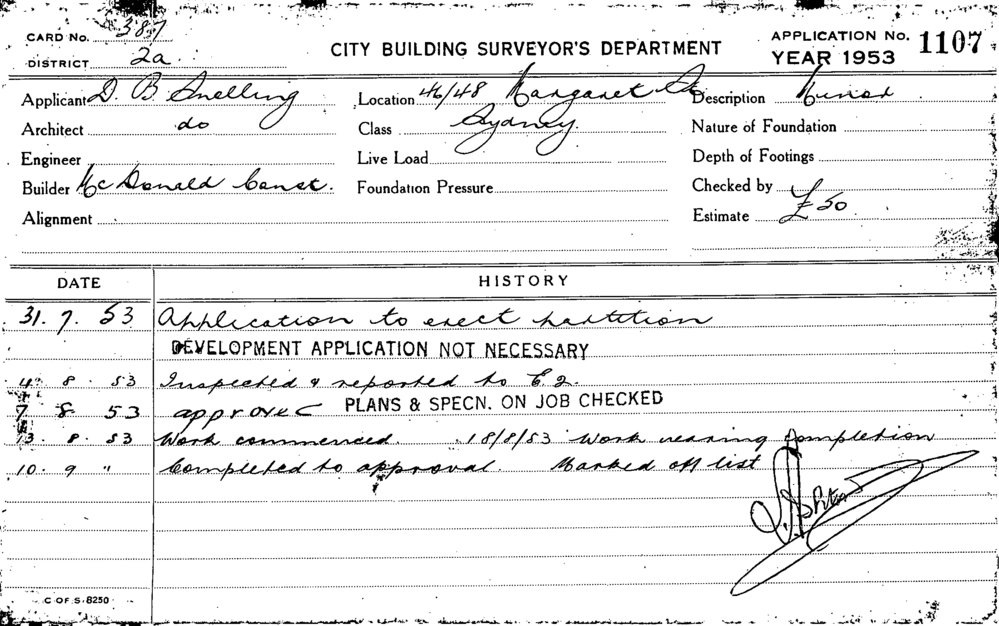 CARD NO. 387
DISTRICT 2a
CITY BUILDING SURVEYOR'S DEPARTMENT
APPLICATION NO. 1107
YEAR 1953
Applicant D. B. Snelling
Location 46/48 Margaret St
Description Minor
Architect do
Class Sydney.
Nature of Foundation
Engineer
Live Load
Depth of Footings
Builder McDonald Const.
Foundation Pressure
Checked by
Alignment
Estimate £50
DATE HISTORY
31. 7. 53 Application to erect partition
DEVELOPMENT APPLICATION NOT NECESSARY
4. 8. 53 Inspected & reported to
7. 8. 53 approved PLANS & SPECN. ON JOB CHECKED
13. 8. 53 Work commenced. 18/8/53 Work nearing completion
10. 9 " Completed to approval. Marked off list
C OF S. 8250